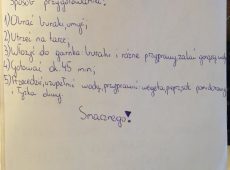 Sposób przygotowania:
1) Obrać buraki, umyć;
2) Utrzeć na tarce;
3) Włożyć do garnka buraki i różne przyprawy, zalać gorącą wodą
4) Gotować ok 45 min;
5) Przecedzić, uzupełnić wodą, przyprawić vegetą, pieprzem,
i łyżką
Smacznego!